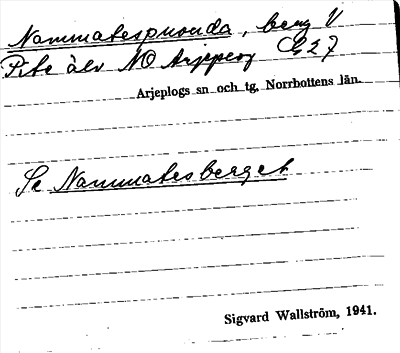 Nammatespuouda, berg V
Pite älv NO Arjeplog C27
Arjeplogs sn och tg, Norrbottens län.
Se Nammatesberget
Sigvard Wallström, 1941.